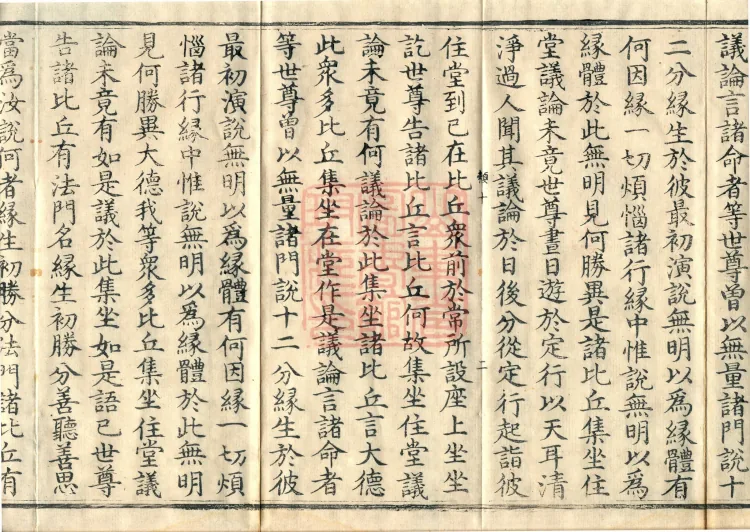 議論言諸命者等世尊曾以無量諸門說十
二分緣生於彼最初演說無明以爲緣體有
何因緣一切煩惱諸行緣中惟說無明以爲
緣體於此無明見何勝異是諸比丘集坐住
堂議論未竟世尊晝日遊於定行以天耳清
淨過人聞其議論於日後分從定行起詣彼
頻十 二
住堂到已在比丘衆前於常所設座上坐坐
訖世尊告諸比丘言比丘何故集坐住堂議
論未竟有何議論於此集坐諸比丘言大德
此衆多比丘集坐在堂作是議論言諸命者
等世尊曾以無量諸門說十二分緣生於彼
最初演說無明以爲緣體有何因緣一切煩
惱諸行緣中惟說無明以爲緣體於此無明
見何勝異大德我等衆多比丘集坐住堂議
論未竟有如是議於此集坐如是語已世尊
告諸比丘有法門名緣生初勝分善聽善思
當爲汝說何者緣生初勝分法門諸比丘有